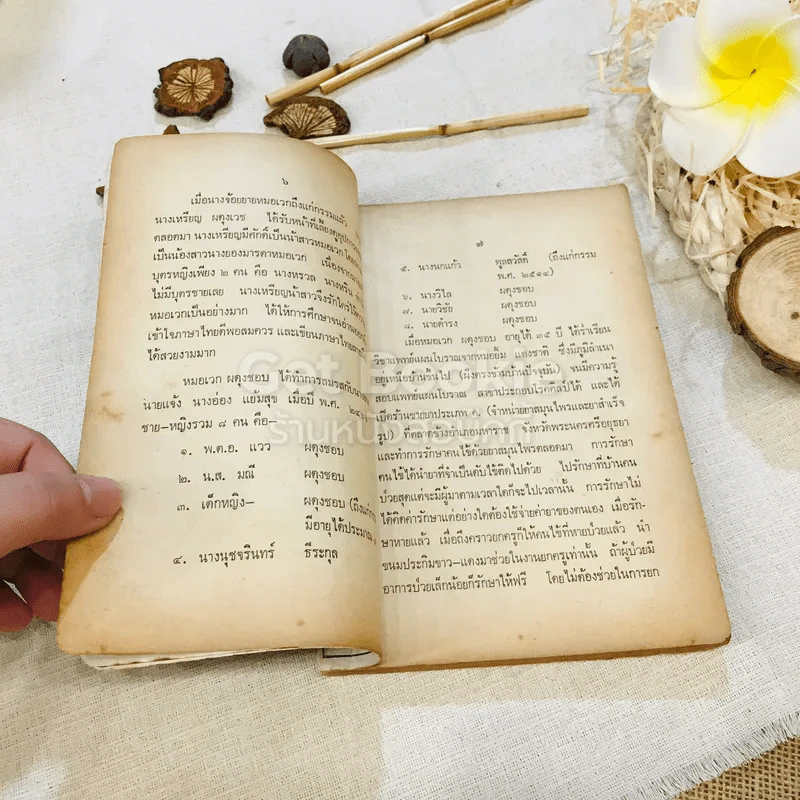 ๖
เมื่อนางจ้อยยายหมอเวกถึงแก่กรรมแล้ว
นางเหรียญ ผดุงเวช ได้รับหน้าที่เลี้ยงดู
ตลอดมา นางเหรียญมีศักดิ์เป็นน้าสาวหมอเวก
เป็นน้องสาวนางยองมารดาหมอเวก เนื่องจาก
บุตรหญิงเพียง ๒ คน คือ นางหรวล นางหริ่น
ไม่มีบุตรชายเลย นางเหรียญน้าสาวจึงรักใคร่
หมอเวกเป็นอย่างมาก ได้ให้การศึกษาจนอ่าน
เข้าใจภาษาไทยดีพอสมควร และเขียนภาษาไทย
ได้สวยงามมาก
หมอเวก ผดุงชอบ ได้ทำการสมรสกับ
นายแจ้ง นางอ่อง แย้มสุข เมื่อปี พ.ศ.
ชาย-หญิงรวม ๘ คน คือ-
๑. พ.ต.อ. แวว ผดุงชอบ
๒. น.ส. มณี ผดุงชอบ
๓. เด็กหญิง- ผดุงชอบ (ถึงแก่
มีอายุได้ประมาณ
๔. นางนุชจรินทร์ ธีระกุล
๗
๕. นางนกแก้ว พูลสวัสดิ์ (ถึงแก่กรรม
พ.ศ. ๒๕๑๔)
๖. นางวิไล ผดุงชอบ
๗. นายวิชัย ผดุงชอบ
๘. นายดำรง ผดุงชอบ
เมื่อหมอเวก ผดุงชอบ อายุได้ ๓๕ ปี ได้ร่ำเรียน
วิชาแพทย์แผนโบราณจากหมอยิ้ม แดงชาติ ซึ่งมีภูมิลำเนา
อยู่เหนือบ้านขึ้นไป (ฝั่งตรงข้ามบ้านปัจจุบัน) จนมีความรู้
สอบแพทย์แผนโบราณ สาขาประกอบโรคศิลป์ได้ และได้
เปิดร้านขายยาประเภท ค. (จำหน่ายยาสมุนไพรและยาสำเร็จ
รูป) ที่ตลาดร้างอำเภอมหาราช จังหวัดพระนครศรีอยุธยา
และทำการรักษาคนไข้ด้วยยาสมุนไพรตลอดมา การรักษา
คนไข้ได้นำยาที่จำเป็นดับไข้ติดไปด้วย ไปรักษาที่บ้านคน
ป่วยสุดแต่จะมีผู้มาตามเวลาใดก็จะไปเวลานั้น การรักษาไม่
ได้คิดค่ารักษาแต่อย่างใดต้องใช้จ่ายค่ายาของตนเอง เมื่อรัก-
ษาหายแล้ว เมื่อถึงคราวยกครูก็ให้คนไข้ที่หายป่วยแล้ว นำ
ขนมประกิมขาว-แดงมาช่วยในงานยกครูเท่านั้น ถ้าผู้ป่วยมี
อาการป่วยเล็กน้อยก็รักษาให้ฟรี โดยไม่ต้องช่วยในการยก